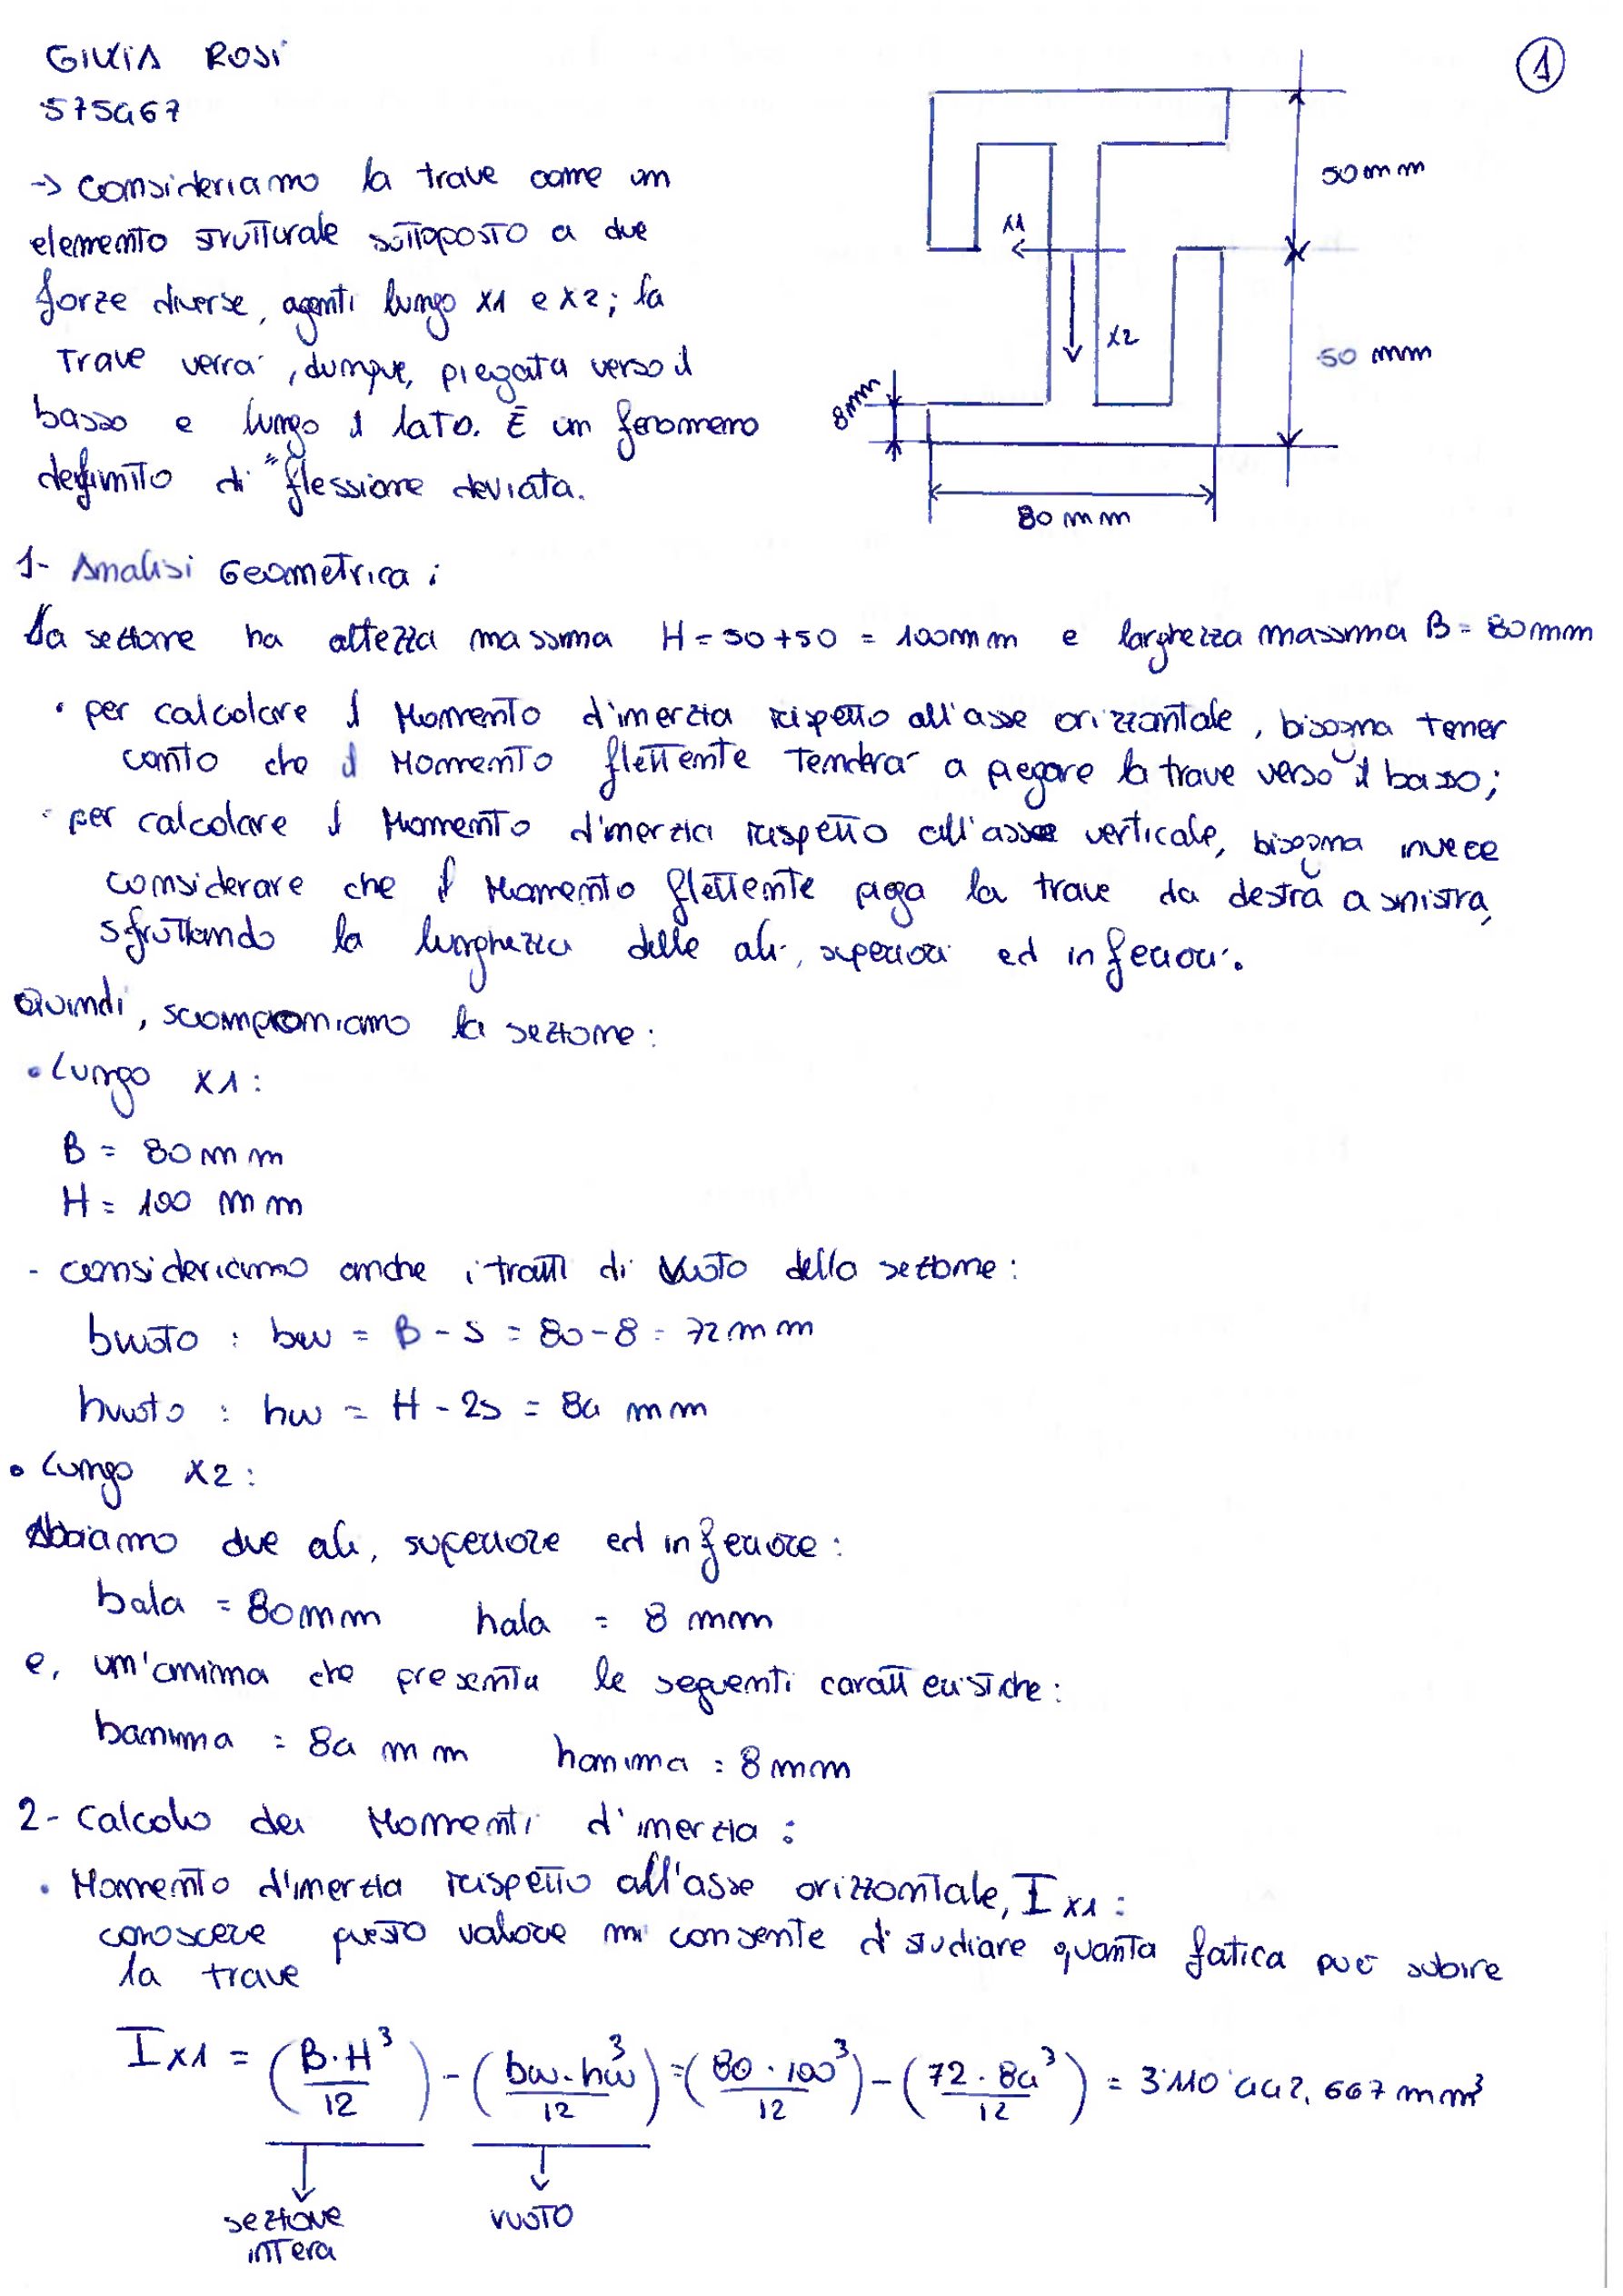 GIULIA ROSI
575467
1
→ consideriamo la trave come un
elemento strutturale sottoposto a due
forze diverse, agenti lungo x1 e x2; la
trave verrà, dunque, piegata verso il
basso e lungo il lato. È un fenomeno
definito di "flessione deviata.
50 mm
x1
x2
50 mm
8mm
80 mm
1- Analisi Geometrica:
La sezione ha altezza massima H = 50+50 = 100mm e larghezza massima B = 80mm
• per calcolare il Momento d'inerzia rispetto all'asse orizzontale, bisogna tener
conto che il Momento flettente tenderà a piegare la trave verso il basso;
• per calcolare il Momento d'inerzia rispetto all'asse verticale, bisogna invece
considerare che il Momento flettente piega la trave da destra a sinistra,
sfruttando la lunghezza delle ali, superiori ed inferiori.
Quindi, scomponiamo la sezione:
• Lungo x1:
B = 80 mm
H = 100 mm
- consideriamo anche i tratti di vuoto della sezione:
bvuoto : bw = B - s = 80-8 = 72 mm
hvuoto : hw = H - 2s = 84 mm
• Lungo x2:
Abbiamo due ali, superiore ed inferiore:
bala = 80mm hala = 8 mm
e, un'anima che presenta le seguenti caratteristiche:
banima = 84 mm hanima = 8 mm
2- Calcolo dei Momenti d'inerzia:
• Momento d'inerzia rispetto all'asse orizzontale, Ix1:
conoscere questo valore mi consente di studiare quanta fatica può subire
la trave
Ix1 = (B·H³/12) - (bw·hw³/12) = (80·100³/12) - (72·84³/12) = 3'110'442,667 mm³
sezione vuoto
intera